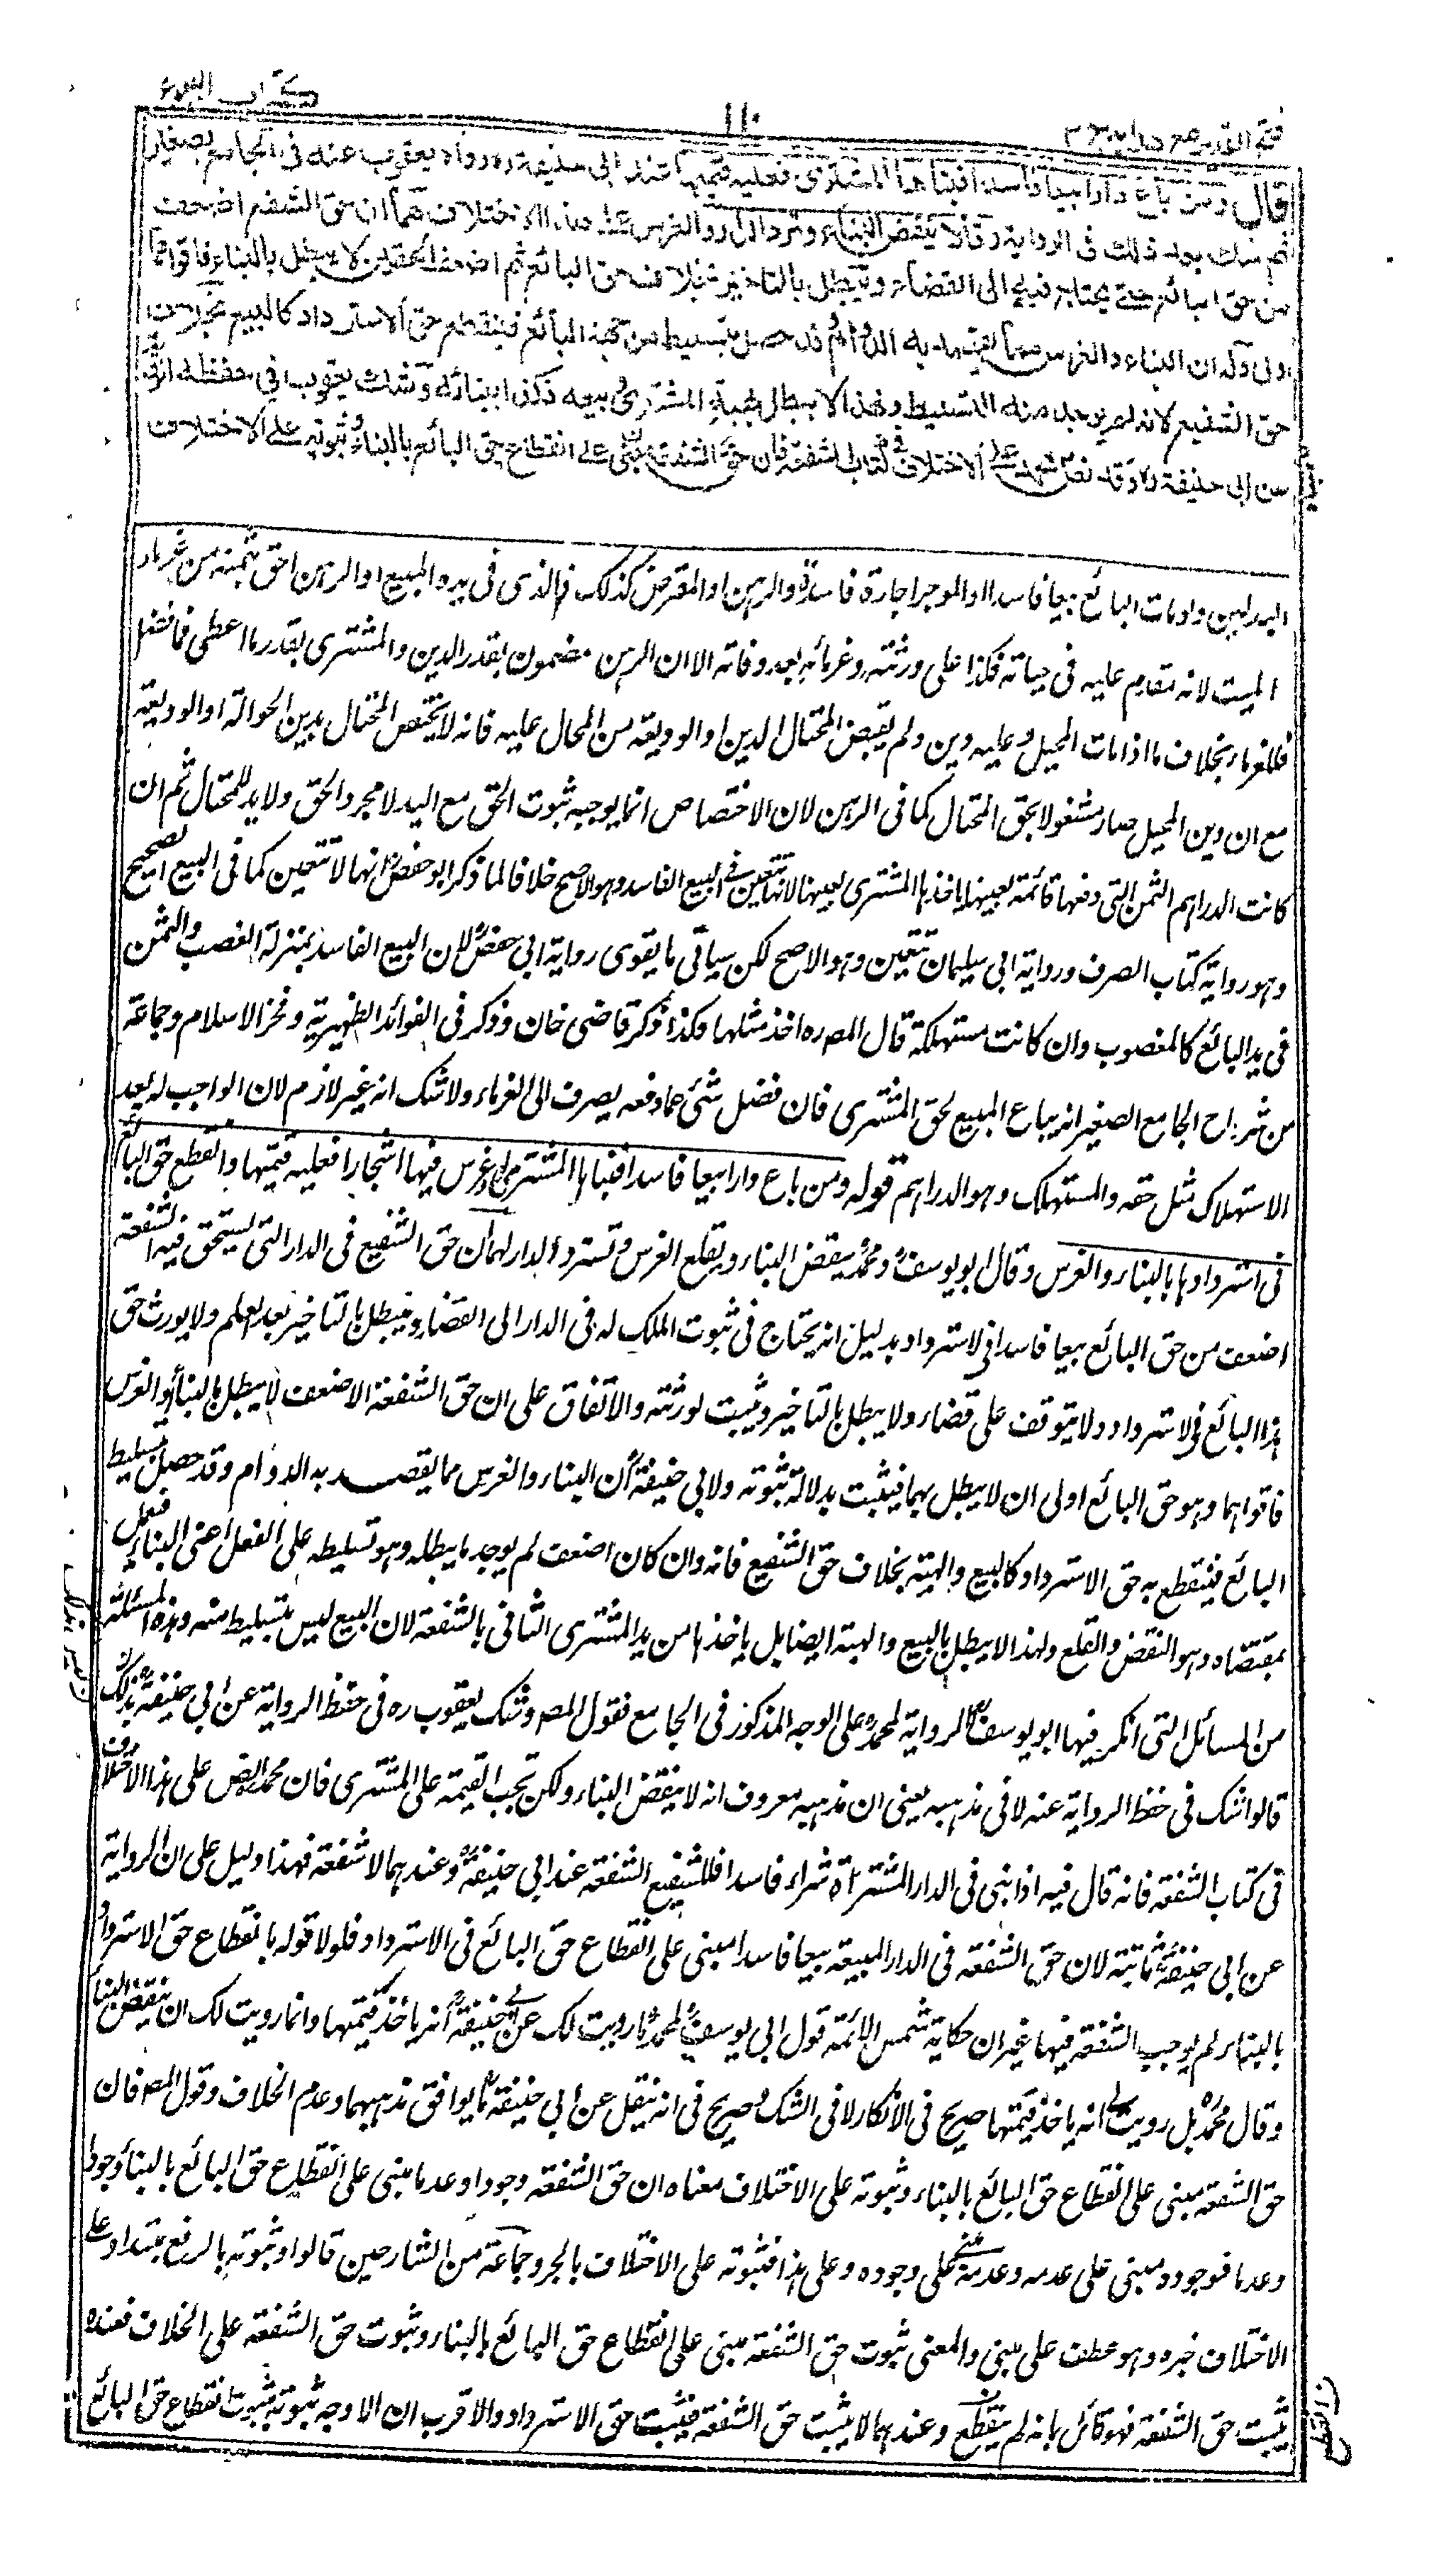 فتح القدير مع هدايه ج ٣
١١٠
كتاب البيوع
قال ومن باع دارا بيعا فاسدا فبناها المشترى فعليه قيمتها عند ابى حنيفة ره رواه يعقوب عنه فى الجامع الصغير
ثم شك بعد ذلك فى الرواية وقالا ينقض البناء وترد الدار والغرس على هذا الاختلاف لهما ان حق الشفيع اضعف
من حق البائع حتى يحتاج فيه الى القضاء ويبطل بالتاخير بخلاف حق البائع ثم اضعف الحقين لا يبطل بالبناء فاقواهما
اولى وله ان البناء والغرس مما يقصد به الدوام وقد حصل بتسليط من جهة البائع فينقطع حق الاسترداد كالبيع بخلاف
حق الشفيع لانه لم يوجد منه التسليط ولهذا لا يبطل بهبة المشترى وبيعه فكذا ببنائه وشك يعقوب فى حفظه الرواية
عن ابى حنيفة ره وقد نص محمد على الاختلاف فى كتاب الشفعة فان حق الشفعة مبنى على انقطاع حق البائع بالبناء وثبوته على الاختلاف
البدلين ولو مات البائع بيعا فاسدا او الموجر اجارة فاسدة والراهن او المقرض كذلك فالذى فى يده المبيع او الرهن احق بثمنه من غرماء
الميت لانه مقدم عليه فى حياته فكذا على ورثته وغرمائه بعد وفاته الا ان الرهن مضمون بقدر الدين والمشترى بقدر ما اعطى فما فضل
فللغرماء بخلاف ما اذا مات المحيل وعليه دين ولم يقبض المحتال الدين او الوديعة من المحال عليه فانه لا يختص المحتال بدين الحوالة او الوديعة
مع ان دين المحيل صار مشغولا بحق المحتال كما فى الرهن لان الاختصاص انما يوجبه ثبوت الحق مع اليد لا مجرد الحق ولا يد للمحتال ثم ان
كانت الدراهم الثمن التى دفعها قائمة بعينها ياخذها المشترى بعينها لانها تتعين فى البيع الفاسد وهو الاصح خلافا لما ذكر ابو حفص انها لا تتعين كما فى البيع الصحيح
وهو رواية كتاب الصرف ورواية ابى سليمان تتعين وهو الاصح لكن سياتى ما يقوى رواية ابى حفص لان البيع الفاسد بمنزلة الغصب والثمن
فى يد البائع كالمغصوب وان كانت مستهلكة قال المصره اخذ مثلها وكذا ذكر قاضى خان وذكر فى الفوائد الظهيرية وفخر الاسلام وجماعة
من شراح الجامع الصغير انه يباع المبيع لحق المشترى فان فضل شئ عما دفعه يصرف الى الغرماء ولا شك انه غير لازم لان الواجب له بعد
الاستهلاك مثل حقه والمستهلك وهو الدراهم قوله ومن باع دارا بيعا فاسدا فبناها المشترى او غرس فيها اشجارا فعليه قيمتها وانقطع حق البائع
فى استردادها بالبناء والغرس وقال ابو يوسف ومحمد ينقض البناء ويقلع الغرس وتسترد الدار لهما ان حق الشفيع فى الدار التى يستحق فيه الشفعة
اضعف من حق البائع بيعا فاسدا فى الاسترداد بدليل انه يحتاج فى ثبوت الملك له فى الدار الى القضاء ويبطل بالتاخير بعد العلم ولا يورث حق
هذا البائع فى الاسترداد ولا يتوقف على قضاء ولا يبطل بالتاخير ويثبت لورثته والاتفاق على ان حق الشفعة الاضعف لا يبطل بالبناء والغرس
فاقواهما وهو حق البائع اولى ان لا يبطل بهما فيثبت بدلالة ثبوته ولابى حنيفة ان البناء والغرس مما يقصد به الدوام وقد حصل بتسليط
البائع فينقطع به حق الاسترداد كالبيع والهبة بخلاف حق الشفيع فانه وان كان اضعف لم يوجد ما يبطله وهو تسليطه على الفعل اعنى البناء فعمل
بمقتضاه وهو النقض والقلع ولهذا لا يبطل بالبيع والهبة ايضا بل ياخذها من يد المشترى الثانى بالشفعة لان البيع ليس بتسليط منه وهذه المسئلة
من المسائل التى انكر فيها ابو يوسف الرواية لمحمد على الوجه المذكور فى الجامع فقول المصر وشك يعقوب ره فى حفظ الرواية عن ابى حنيفة بذلك
قالوا شك فى حفظ الرواية عنه لا فى مذهبه يعنى ان مذهبه معروف انه لا ينقض البناء ولكن تجب القيمة على المشترى فان محمدا نص على هذا الاختلاف
فى كتاب الشفعة فانه قال فيه اذا بنى فى الدار المشتراة شراء فاسدا فللشفيع الشفعة عند ابى حنيفة وعندهما لا شفعة فهذا دليل على ان الرواية
عن ابى حنيفة ثابتة لان حق الشفعة فى الدار المبيعة بيعا فاسدا مبنى على انقطاع حق البائع فى الاسترداد فلولا قوله بانقطاع حق الاسترداد
بالبناء لم يوجب الشفعة فيها غير ان حكاية شمس الائمة قول ابى يوسف لمحمد ما رويت لك عن ابى حنيفة انه ياخذ قيمتها وانما رويت لك ان ينقض البناء
وقال محمد بل رويت لى انه ياخذ قيمتها صريح فى الانكار لا فى الشك وصريح فى انه ينقل عن ابى حنيفة ما يوافق مذهبهما وعدم الخلاف وقول المصر فان
حق الشفعة مبنى على انقطاع حق البائع بالبناء وثبوته على الاختلاف معناه ان حق الشفعة وجودا وعدما مبنى على انقطاع حق البائع بالبناء وجودا
وعدما فوجوده مبنى على عدمه وعدمه مبنى على وجوده وعلى هذا فثبوته على الاختلاف بالجر وجماعة من الشارحين قالوا وثبوته بالرفع مبتدا وعلى
الاختلاف خبره وهو عطف على مبنى والمعنى ثبوت حق الشفعة مبنى على انقطاع حق البائع بالبناء وثبوت حق الشفعة على الخلاف فعنده
يثبت حق الشفعة فهو قائل بانه لم ينقطع وعندهما لا يثبت حق الشفعة فيثبت حق الاسترداد والاقرب ان الاوجه ثبوته بثبوت انقطاع حق البائع